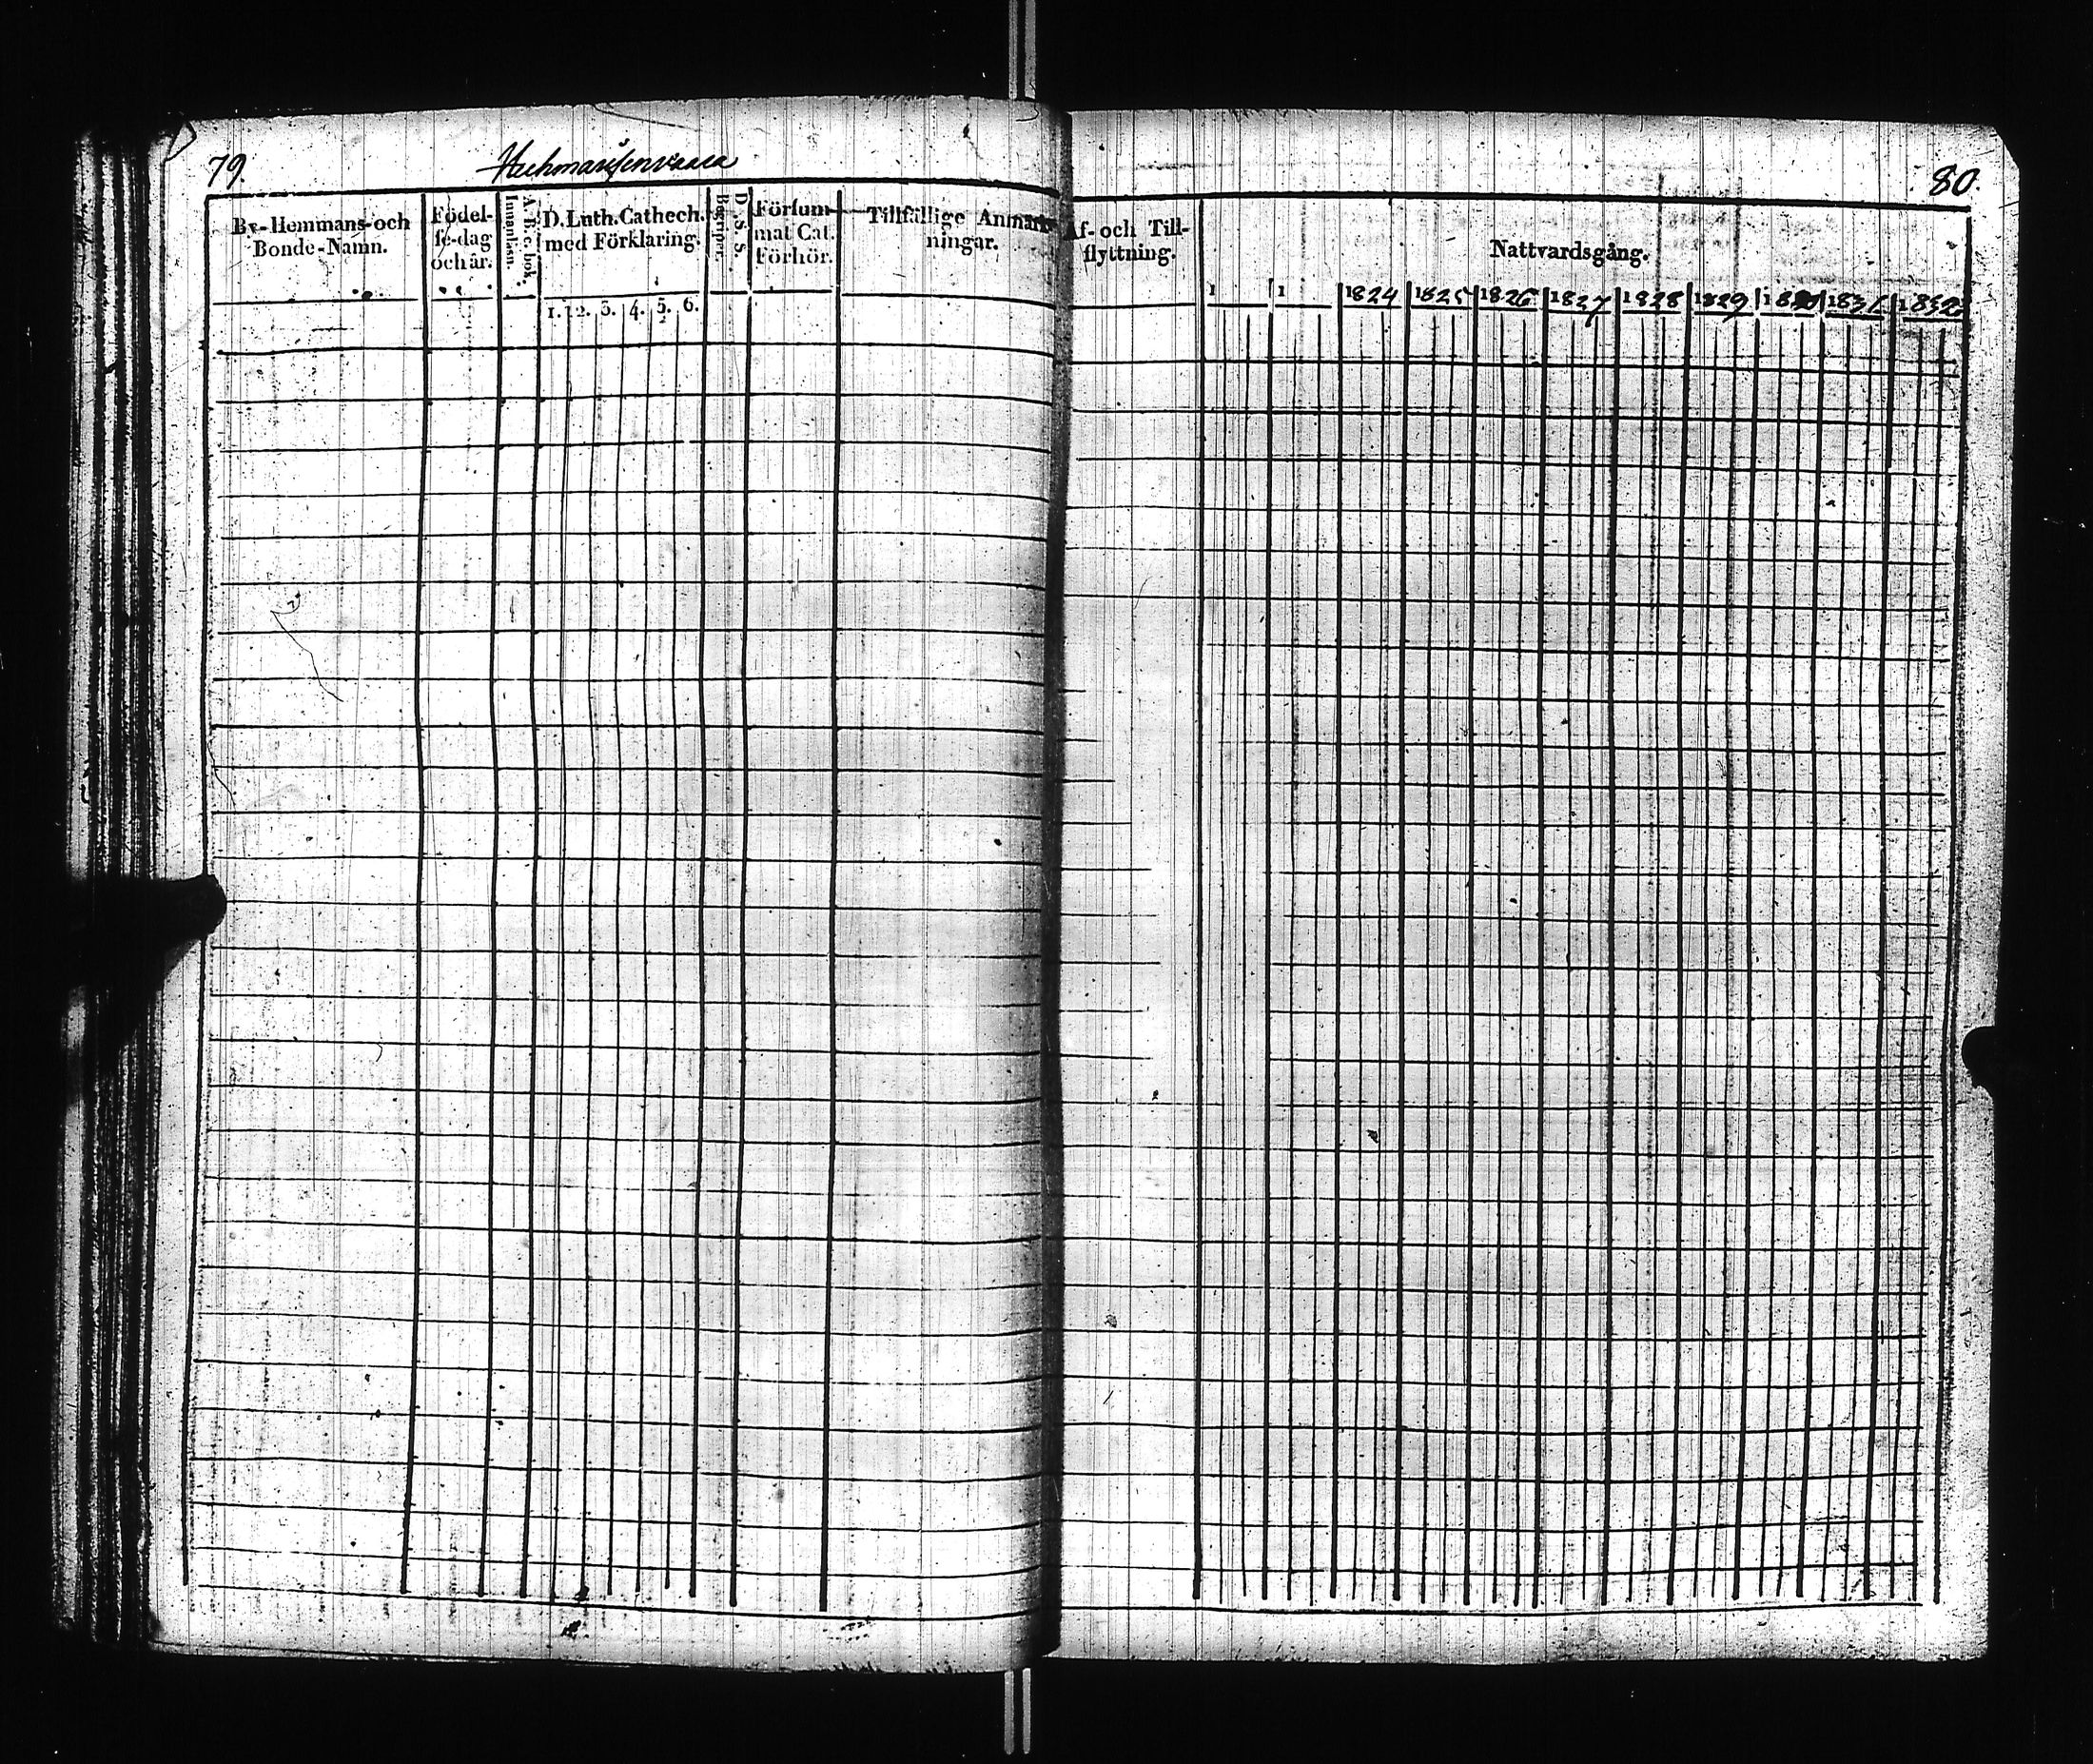 79.
80.
By-Hemmans-och
Bonde-Namn.
Födel-
se-dag
och år.
A. B. c. bok.
Innanläsn.
D. Luth. Cathech.
med Förklaring.
1. 2. 3. 4. 5. 6.
D. S. S.
Begriper.
Försum-
mat Cat.
Förhör.
Tillfällige Anmärk-
ningar.
Af- och Till-
flyttning.
Nattvardsgång.
1 1 1824 1825 1826 1827 1828 1829 1830 1831 1832